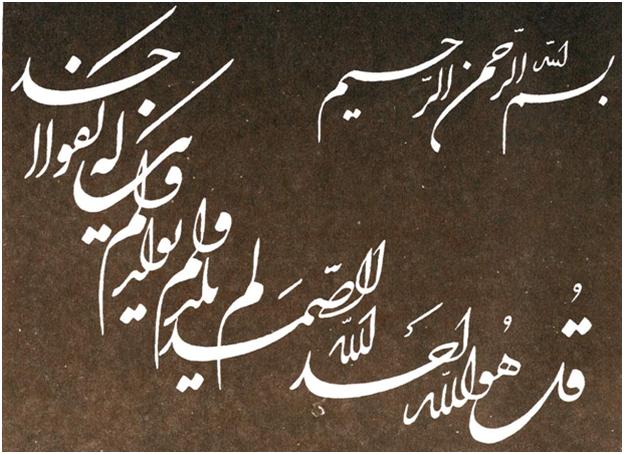 بسم الله الرّحمن الرّحيم
قُل هُو الله احَد الله الصّمَد لم يلد ولم يولد ولم يكن له كفوا احد